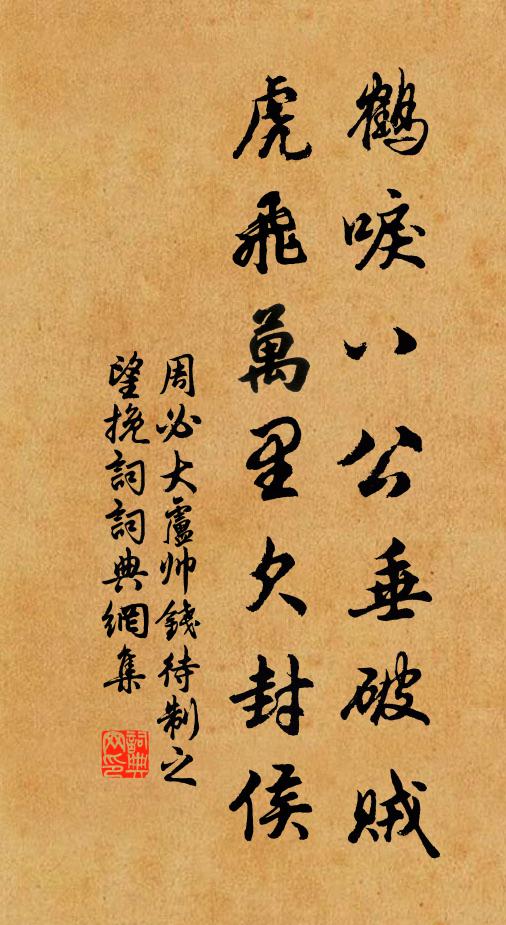 鶴唳八公垂破賊
虎飛萬里欠封侯
周必大盧帅錢待制之
望挽詞詞典網集
詞典網印